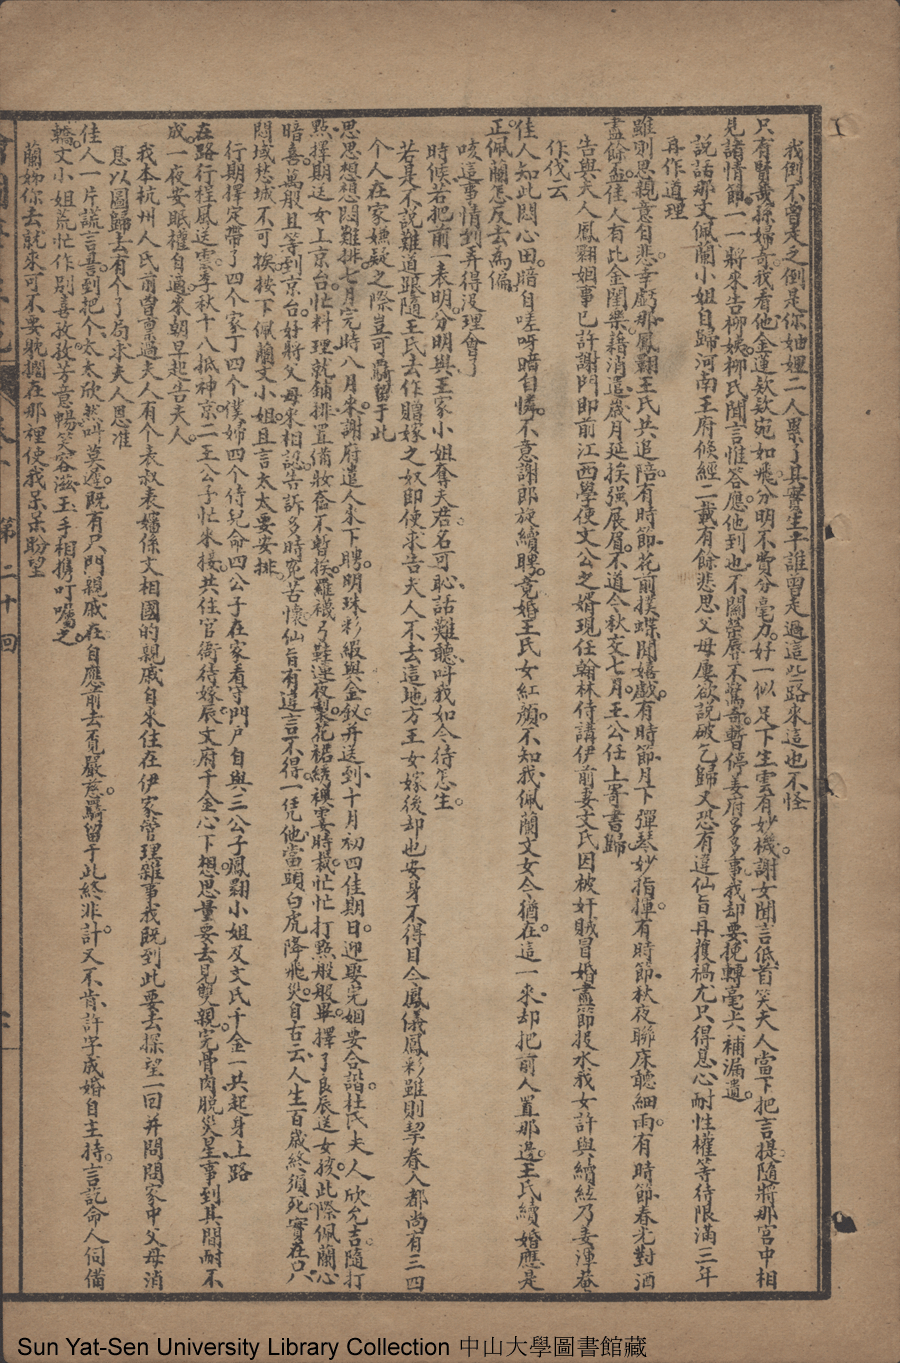 我倒不曾走之倒是你妯娌二人累了其實生平誰曾走過這些路來這也不怪
只有賢哉孫婦奇我看他金蓮欵欵宛如飛分明不費分毫力好一似足下生雲有妙機謝女聞言低首笑夫人當下把言提隨將那宮中相
見諸情節一一將來告柳姨柳氏聞言惟答應他到也不關榮辱不驚奇暫停姜府多多事我却要挽轉毫尖補漏遺
說話那文佩蘭小姐自歸河南王府倏經二載有餘悲思父母屢欲說破乞歸又恐有違仙旨再復禍尤只得息心耐性權等待限滿三年
再作道理
雖則思親意自悲幸虧那鳳翾王氏共追陪有時節花前撲蝶閒嬉戲有時節月下彈琴妙指揮有時節秋夜聯床聽細雨有時節春光對酒
盡餘盃佳人有此金閨樂藉消遣歲月延挨强展眉不道今秋交七月王公任上寄書歸
告與夫人鳳翾姻事已許謝門即前江西學使文公之婿現任翰林侍講伊前妻文氏因被奸賊冒婚盡節投水我女許與續絃乃妻渾菴
作伐云
佳人知此悶心田暗自嗟呀暗自憐不意謝郎旋續聘竟婚王氏女紅顏不知我佩蘭文女今猶在這一來却把前人置那邊王氏續婚應是
正佩蘭怎反去為偏
咳這事情到弄得沒理會了
時候若把前一表明分明與王家小姐奪夫君名可恥話難聽呌我如今待怎生
若是不說難道跟隨王氏去作贈嫁之奴即使求告夫人不去這地方王女嫁後却也安身不得目今鳳儀鳳彩雖則挈眷入都尚有三四
個人在家嫌疑之際豈可覊留于此
思思想想悶難排七月完時八月來謝府遣人來下聘明珠彩緞與金釵并送到十月初四佳期日迎娶完姻要合諧杜氏夫人欣允吉隨打
點擇期送女上京台忙料理就鋪排置備妝奩不暫挨羅襪弓鞋逆夜製花裙綉襖霎時裁忙忙打點般般畢擇了良辰送女孩此際佩蘭心
暗喜萬般且等到京台好將父母來相認告訴多時寃苦懷仙旨有違言不得一任他當頭白虎降飛災自古云人生百歲終須死實在只八
悶城愁城不可挨按下佩蘭文小姐且言太太要安排
行期擇定帶了四個家丁四個僕婦四個侍兒命四公子在家看守門戶自與三公子鳳翾小姐及文氏千金一共起身上路
在路行程風送雲季秋十八抵神京二王公子忙來接共住官衙待嫁辰文府千金心下想思量要去見雙親完骨肉脫災星事到其間耐不
成一夜安眠權自過來朝早起告夫人
我本杭州人氏前曾禀過夫人有個表叔表嬸係文相國的親戚自來住在伊家管理雜事我既到此要去探望一回并問問家中父母消
息以圖歸去有個了局求夫人恩准
佳人一片謊言善到把個太太欣然呌莫遲既有只門親戚在自應前去覓嚴慈覊留于此終非計又不肯許字成婚自主持言訖命人伺備
轎文小姐荒忙作別喜孜孜芳意暢笑容滋玉手相携叮囑之
蘭姊你去就來可不要躭擱在那裡使我呆呆盼望
第二十回
Sun Yat-Sen University Library Collection 中山大學圖書館藏